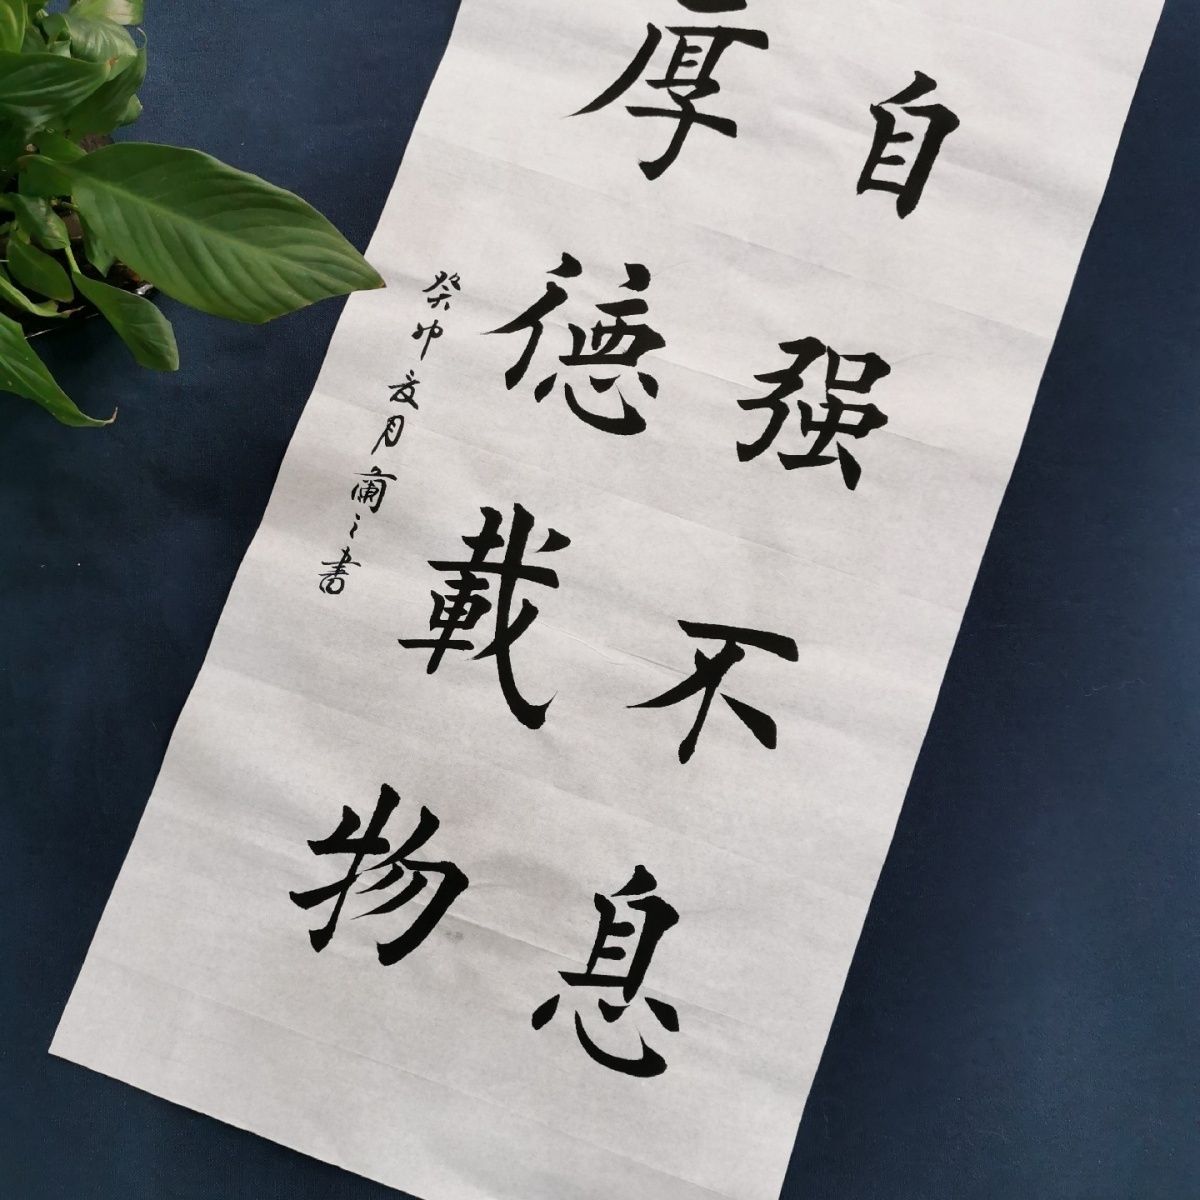 自强不息
厚德載物
癸卯夏月蘭之書